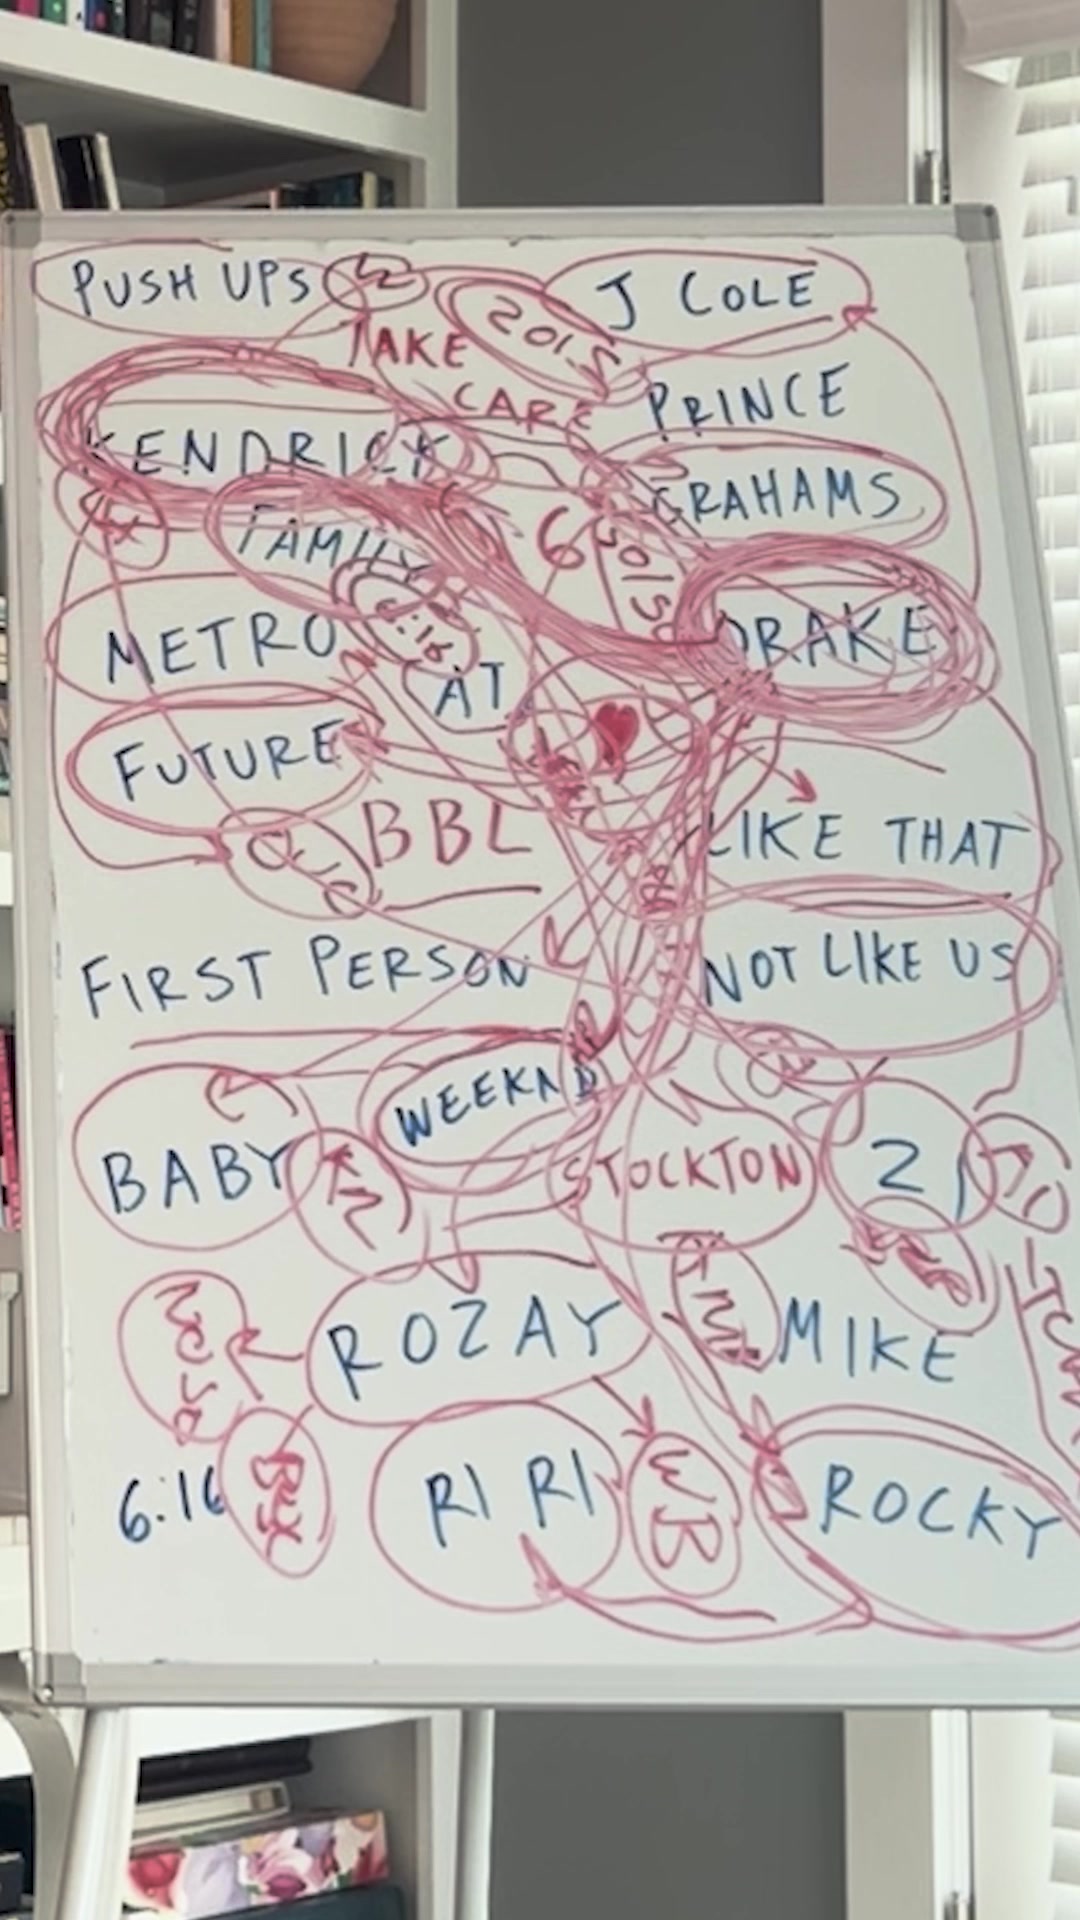 PUSH UPS
J COLE
TAKE
CARE
2015
PRINCE
KENDRICK
GRAHAMS
FAMILY
6
DRAKE
METRO
6:16
AT
FUTURE
BBL
LIKE THAT
FIRST PERSON
NOT LIKE US
WEEKND
BABY
STOCKTON
21
ROZAY
MIKE
6:16
RI RI
WB
ROCKY